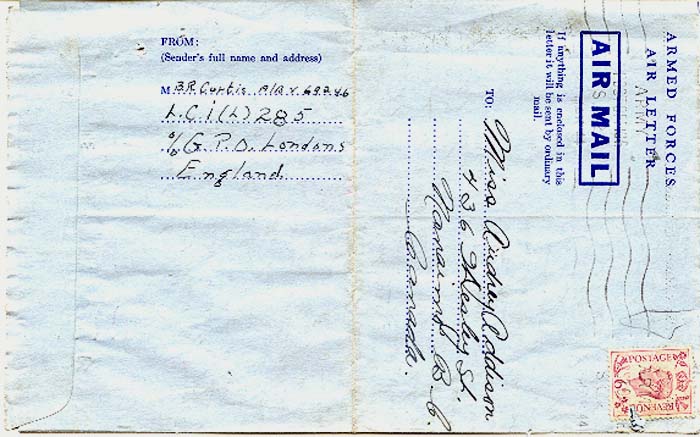 FROM:
(Sender's full name and address)
M B R Curtis A/A V. 69246
L.C.I(L) 285
c/o G.P.O. London
England
ARMED FORCES
AIR LETTER
AIR MAIL
If anything is enclosed in this
letter it will be sent by ordinary
mail.
TO:
Miss Audrey Addison
436 Wesley St.
Nanaimo B.C.
Canada.
POSTAGE
6D
REVENUE